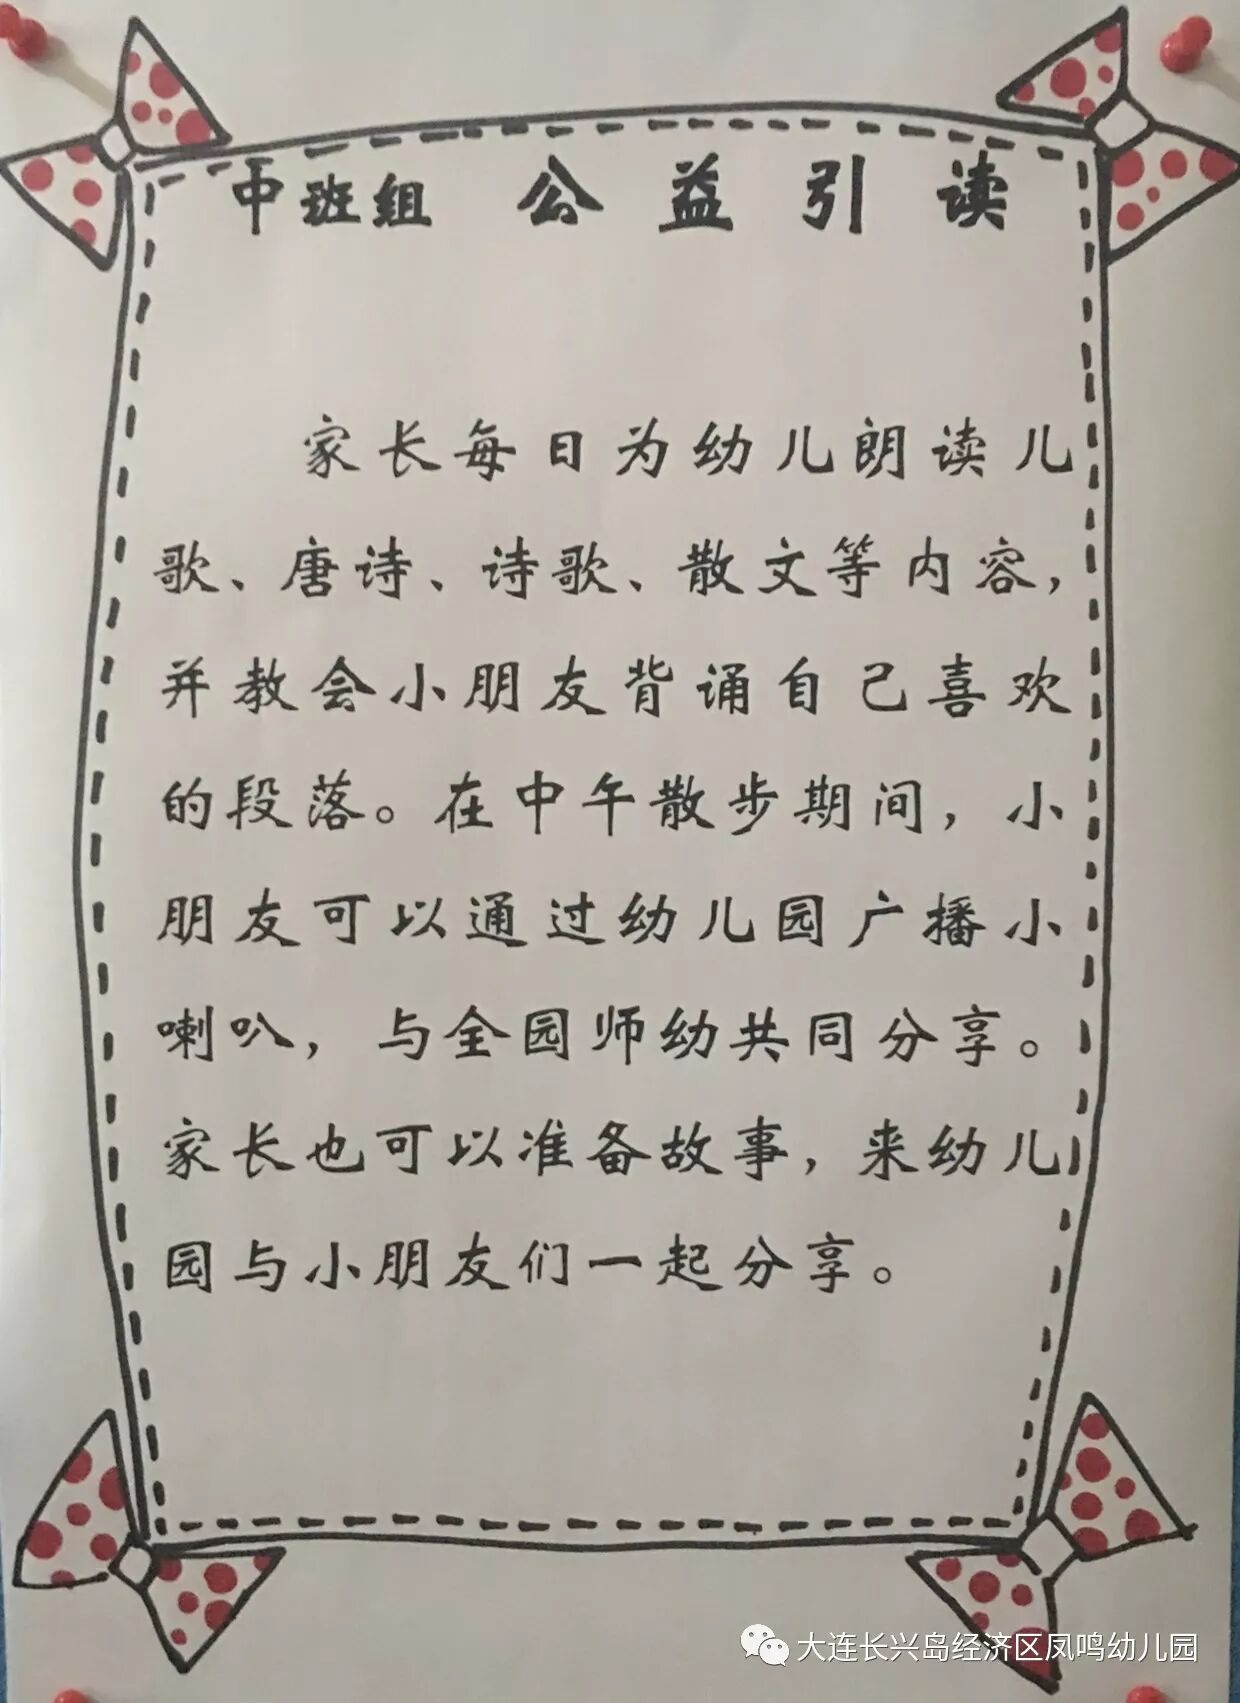 中班组 公益引读
家长每日为幼儿朗读儿
歌、唐诗、诗歌、散文等内容，
并教会小朋友背诵自己喜欢
的段落。在中午散步期间，小
朋友可以通过幼儿园广播小
喇叭，与全园师幼共同分享。
家长也可以准备故事，来幼儿
园与小朋友们一起分享。
大连长兴岛经济区凤鸣幼儿园